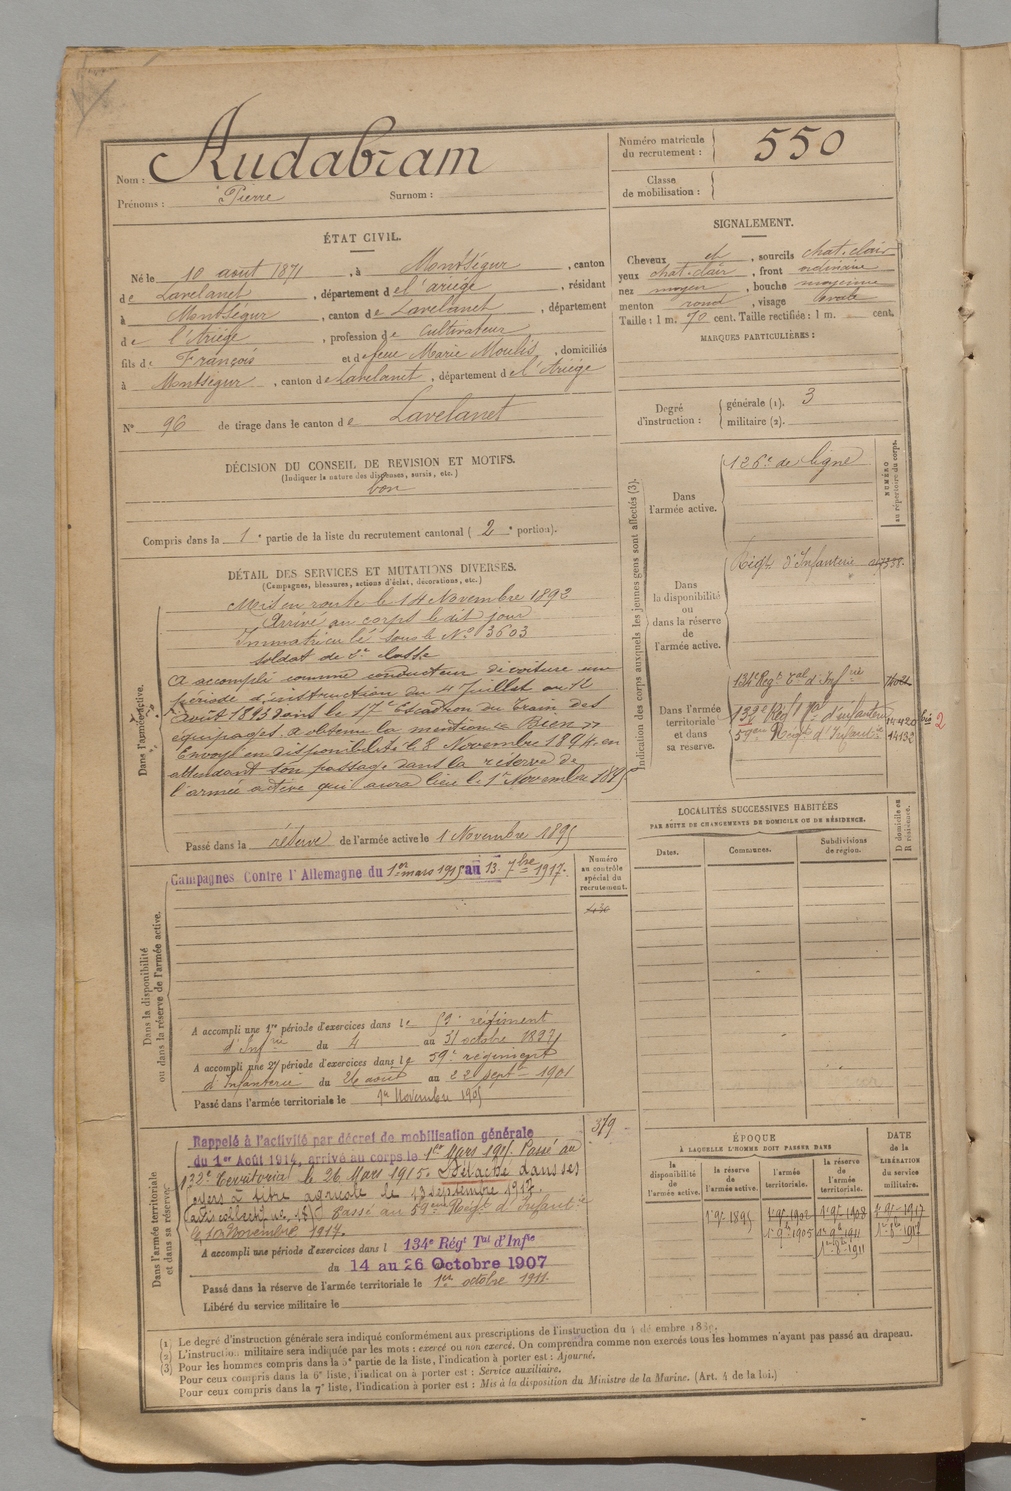 Nom : Audabram
Prénoms : Pierre Surnom :
Numéro matricule du recrutement : 550
Classe de mobilisation :
ÉTAT CIVIL.
Né le 10 août 1871, à Montségur, canton
de Lavelanet, département de l'ariége, résidant
à Montségur, canton de Lavelanet, département
de l'Ariége, profession de Cultivateur
fils de François et de feue Marie Moulis, domiciliés
à Montségur, canton de Lavelanet, département de l'Ariége
N° 96 de tirage dans le canton de Lavelanet
SIGNALEMENT.
Cheveux et, sourcils chat. clair
yeux chat. clair, front ordinaire
nez moyen, bouche moyenne
menton rond, visage ovale
Taille : 1 m. 70 cent. Taille rectifiée : 1 m. cent.
MARQUES PARTICULIÈRES :
Degré d'instruction : générale (1). 3
militaire (2).
DÉCISION DU CONSEIL DE REVISION ET MOTIFS.
(Indiquer la nature des dispenses, sursis, etc.)
bon
Compris dans la 1e partie de la liste du recrutement cantonal (2e portion).
DÉTAIL DES SERVICES ET MUTATIONS DIVERSES.
(Campagnes, blessures, actions d'éclat, décorations, etc.)
Dans l'armée active.
Mis en route le 14 Novembre 1892
Arrivé au corps le dit jour
Immatriculé sous le N° 3603
soldat de 2e classe
A accompli comme conducteur de voiture une
période d'instruction du 4 Juillet au 12
août 1893 dans le 17e Escadron du Train des
équipages. a obtenu la mention « Bien »
Envoyé en disponibilité le 8 Novembre 1894. en
attendant son passage dans la réserve de
l'armée active qui aura lieu le 1er Novembre 1895
Passé dans la réserve de l'armée active le 1 Novembre 1895
Dans la disponibilité ou dans la réserve de l'armée active.
Campagnes Contre l'Allemagne du 1er mars 1915 au 13. 7bre 1917.
Numéro au contrôle spécial du recrutement.
A accompli une 1re période d'exercices dans le 59e régiment
d'Infrie du 4 au 31 octobre 1897
A accompli une 2e période d'exercices dans le 59e régiment
d'Infanterie du 26 août au 22 septe 1901
Passé dans l'armée territoriale le 1er Novembre 1905
Dans l'armée territoriale et dans sa réserve.
Rappelé à l'activité par décret de mobilisation générale
du 1er Août 1914, arrivé au corps le 1er Mars 1915. Passé au
132e Territorial le 26 Mars 1915. Détaché dans ses
foyers à titre agricole le 13 septembre 1917.
Passé au 59eme Régt d'Infantrie
le 1er Novembre 1917.
379
A accompli une période d'exercices dans l 134e Régt Tal d'Infie
du 14 au 26 Octobre 1907
Passé dans la réserve de l'armée territoriale le 1er octobre 1911.
Libéré du service militaire le
Indication des corps auxquels les jeunes gens sont affectés (3).
NUMÉRO au répertoire du corps.
Dans l'armée active.
126e de ligne
Dans la disponibilité ou dans la réserve de l'armée active.
Régt d'Infanterie
Dans l'armée territoriale et dans sa réserve.
134e Régt Tal d'Infrie
132e Régt Tal d'infanterie 14420 bis 2
59eme Régt d'Infantrie 14132
LOCALITÉS SUCCESSIVES HABITÉES
PAR SUITE DE CHANGEMENTS DE DOMICILE OU DE RÉSIDENCE.
Dates. Communes. Subdivisions de région. D domicile ou R résidence.
ÉPOQUE
À LAQUELLE L'HOMME DOIT PASSER DANS
la disponibilité de l'armée active. la réserve de l'armée active. l'armée territoriale. la réserve de l'armée territoriale.
DATE de la LIBÉRATION du service militaire.
1er 9bre 1895 1er 9bre 1902 1er 9bre 1908 1er 9bre 1917
1er 9bre 1905 1er 9bre 1911
(1) Le degré d'instruction générale sera indiqué conformément aux prescriptions de l'instruction du 4 décembre 1889.
(2) L'instruction militaire sera indiquée par les mots : exercé ou non exercé. On comprendra comme non exercés tous les hommes n'ayant pas passé au drapeau.
(3) Pour les hommes compris dans la 5e partie de la liste, l'indication à porter est : Ajourné.
Pour ceux compris dans la 6e liste, l'indication à porter est : Service auxiliaire.
Pour ceux compris dans la 7e liste, l'indication à porter est : Mis à la disposition du Ministre de la Marine. (Art. 4 de la loi.)